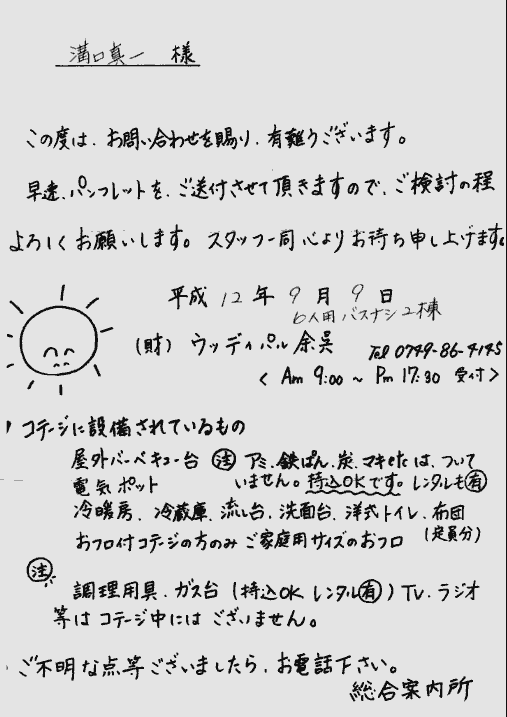 溝口真一 様
この度は、お問い合わせを賜り、有難うございます。
早速、パンフレットを、ご送付させて頂きますので、ご検討の程
よろしくお願いします。スタッフ一同心よりお待ち申し上げます。
平成 12 年 9 月 9 日
6人用 バスナシ 2棟
(財) ウッディパル余呉 Tel 0749-86-4145
< Am 9:00 ~ Pm 17:30 受付 >
コテージに設備されているもの
屋外バーベキュー台 注 アミ、鉄ぱん、炭、マキetcは、ついて
いません。持込OKです。レンタルも有
電気ポット
冷暖房、冷蔵庫、流し台、洗面台、洋式トイレ、布団
(定員分)
お風呂付コテージの方のみ ご家庭用サイズのおフロ
注
調理用具、ガス台 (持込OK レンタル有) TV、ラジオ
等は コテージ中には ございません。
ご不明な点等ございましたら、お電話下さい。
総合案内所